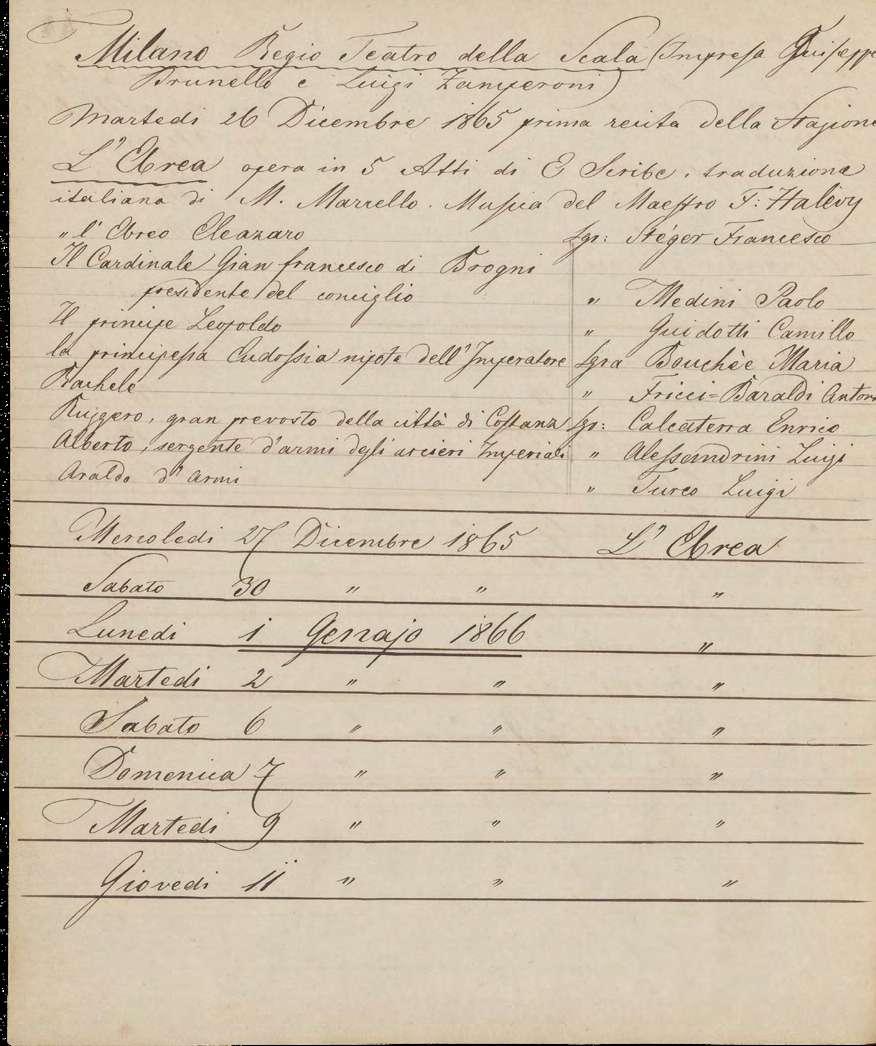 Milano Regio Teatro della Scala (Impresa Guiseppe
Brunello e Luigi Zamperoni)
Martedi 26 Dicembre 1865 prima recita della Stagione
L'Ebrea opera in 5 Atti di E Scribe. traduzione
italiana di M. Marcello. Musica del Maestro F: Halévy
" l'Ebreo Eleazaro Sgr: Stéger Francesco
Il Cardinale Gian francesco di Brogni
presidente del conciglio " Medini Paolo
Il principe Leopoldo " Guidotti Camillo
la principessa Eudossia nipote dell'Imperatore Sgra Bouchèe Maria
Rachele " Fricci=Baraldi Anton
Ruggero, gran prevosto della città di Costanz Sgr: Calcaterra Enrico
Alberto, sergente d'armi degli arcieri Imperiali " Alessandrini Luigi
Araldo d'armi " Turco Luigi
Mercoledi 27 Dicembre 1865 L'Ebrea
Sabato 30 " " "
Lunedi 1 Gennajo 1866 "
Martedi 2 " " "
Sabato 6 " " "
Domenica 7 " " "
Martedi 9 " " "
Giovedi 11 " " "